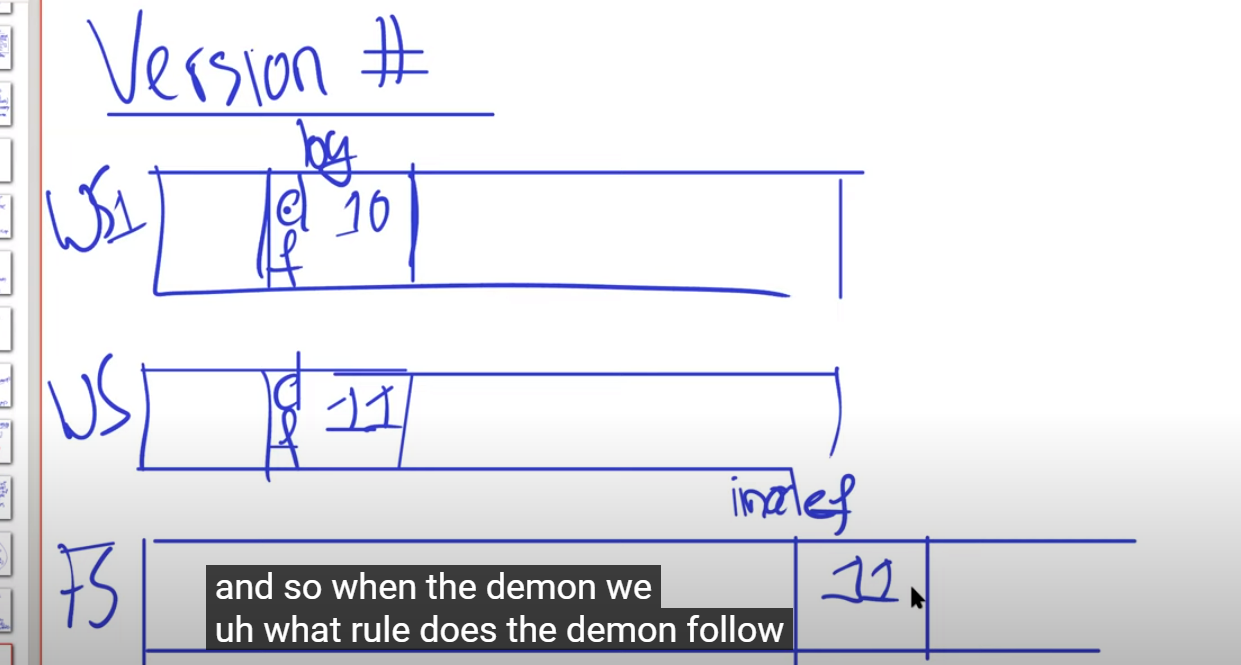 Version #
log
WS1 df 10
WS df 11
inodef
FS 11
and so when the demon we
uh what rule does the demon follow